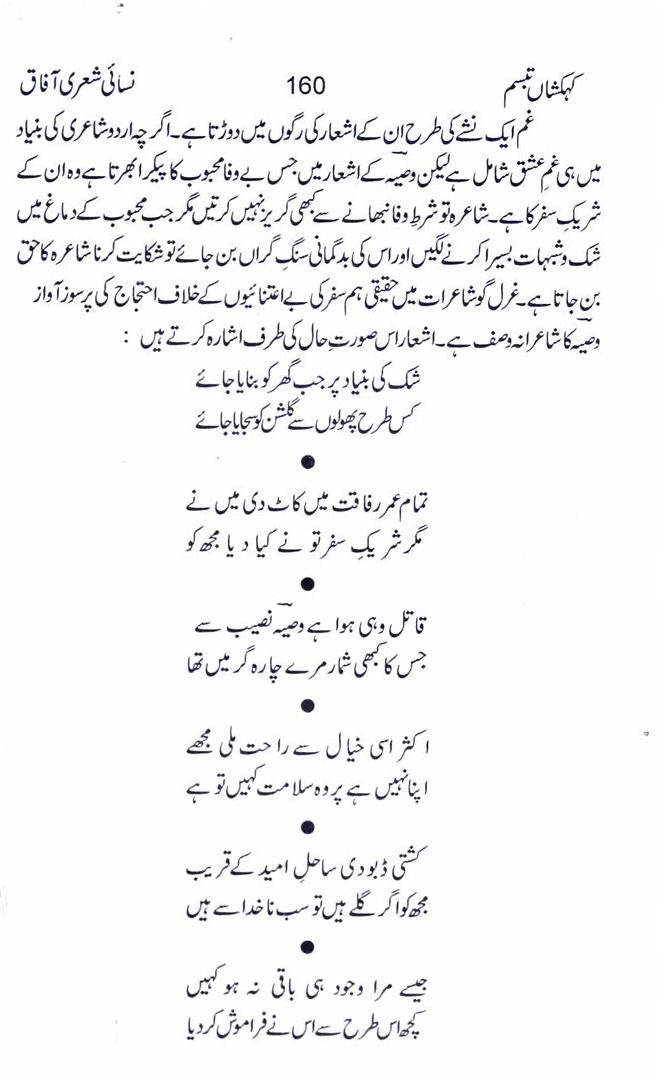 کہکشاں تبسم 160 نسائی شعری آفاق
غم ایک نشے کی طرح ان کے اشعار کی رگوں میں دوڑتا ہے۔ اگرچہ اردو شاعری کی بنیاد
میں ہی غمِ عشق شامل ہے لیکن وصیہؔ کے اشعار میں جس بے وفا محبوب کا پیکر ابھرتا ہے وہ ان کے
شریکِ سفر کا ہے۔ شاعرہ تو شرطِ وفا نبھانے سے کبھی گریز نہیں کرتیں مگر جب محبوب کے دماغ میں
شک و شبہات بسیرا کرنے لگیں اور اس کی بدگمانی سنگِ گراں بن جائے تو شکایت کرنا شاعرہ کا حق
بن جاتا ہے۔ غزل گو شاعرات میں حقیقی ہم سفر کی بے اعتنائیوں کے خلاف احتجاج کی پرسوز آواز
وصیہؔ کا شاعرانہ وصف ہے۔ اشعار اس صورتِ حال کی طرف اشارہ کرتے ہیں :
شک کی بنیاد پر جب گھر کو بنایا جائے
کس طرح پھولوں سے گلشن کو سجایا جائے
●
تمام عمر رفاقت میں کاٹ دی میں نے
مگر شریکِ سفر تو نے کیا دیا مجھ کو
●
قاتل وہی ہوا ہے وصیہؔ نصیب سے
جس کا کبھی شمار مرے چارہ گر میں تھا
●
اکثر اسی خیال سے راحت ملی مجھے
اپنا نہیں ہے پر وہ سلامت کہیں تو ہے
●
کشتی ڈبو دی ساحلِ امید کے قریب
مجھ کو اگر گلے ہیں تو سب ناخدا سے ہیں
●
جیسے مرا وجود ہی باقی نہ ہو کہیں
کچھ اس طرح سے اس نے فراموش کر دیا